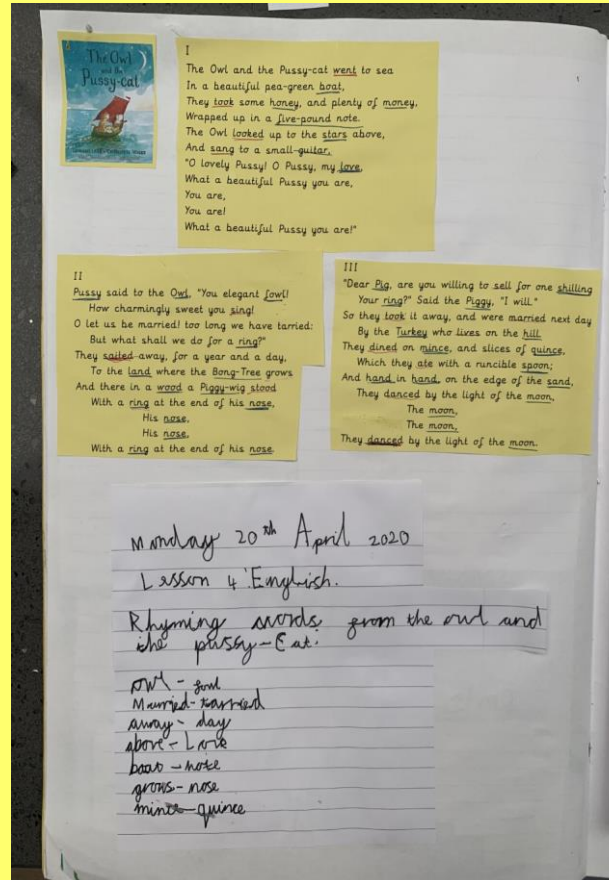 The Owl
and the
Pussy-cat
I
The Owl and the Pussy-cat went to sea
In a beautiful pea-green boat,
They took some honey, and plenty of money,
Wrapped up in a five-pound note.
The Owl looked up to the stars above,
And sang to a small guitar,
"O lovely Pussy! O Pussy, my love,
What a beautiful Pussy you are,
You are,
You are!
What a beautiful Pussy you are!"
II
Pussy said to the Owl, "You elegant fowl!
How charmingly sweet you sing!
O let us be married! too long we have tarried:
But what shall we do for a ring?"
They sailed away, for a year and a day,
To the land where the Bong-Tree grows
And there in a wood a Piggy-wig stood
With a ring at the end of his nose,
His nose,
His nose,
With a ring at the end of his nose.
III
"Dear Pig, are you willing to sell for one shilling
Your ring?" Said the Piggy, "I will."
So they took it away, and were married next day
By the Turkey who lives on the hill.
They dined on mince, and slices of quince,
Which they ate with a runcible spoon;
And hand in hand, on the edge of the sand,
They danced by the light of the moon,
The moon,
The moon,
They danced by the light of the moon.
Monday 20th April 2020
Lesson 4 English.
Rhyming words from the owl and
the pussy-Cat.
owl - fowl
Married-tarried
away - day
above - Love
boat - note
grows - nose
mince - quince